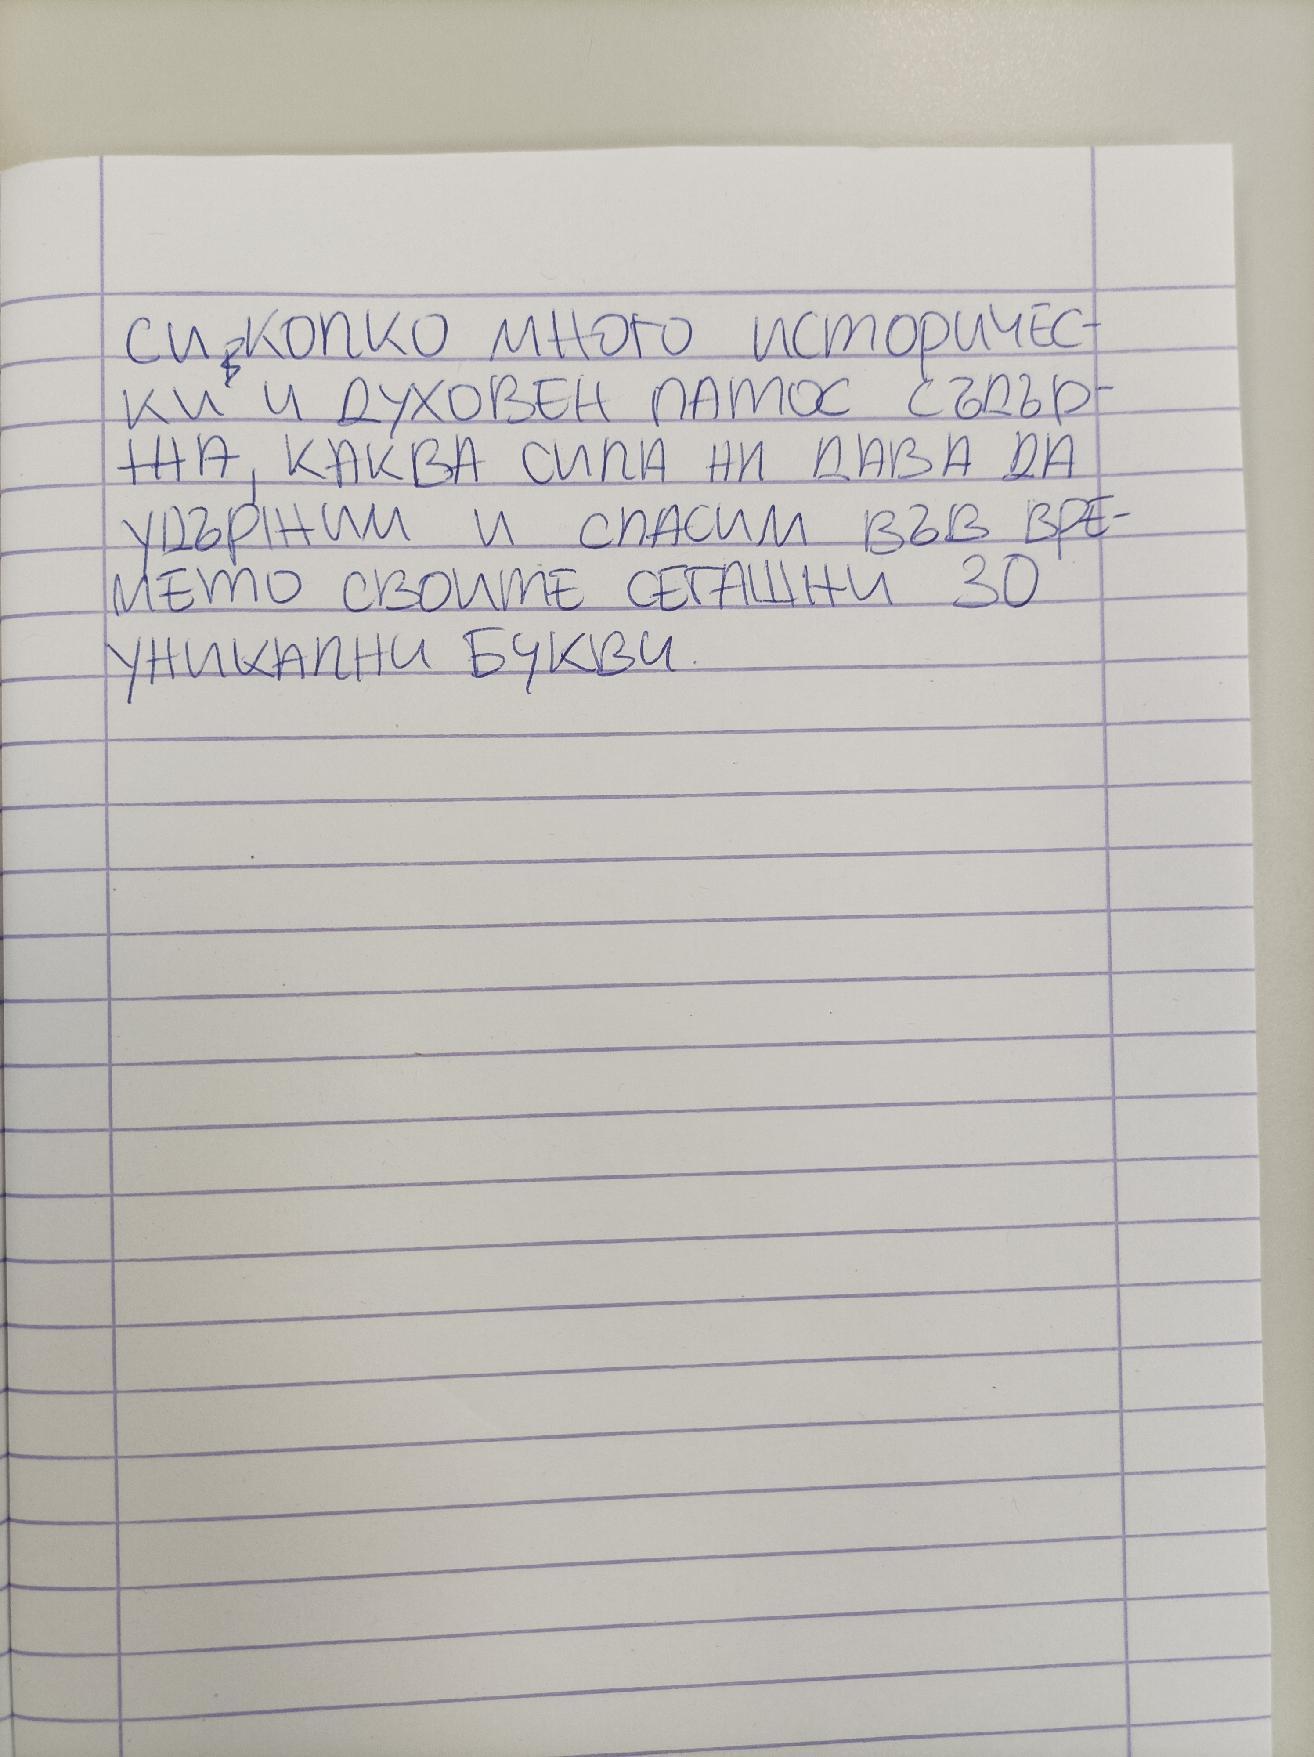 СИ, КОЛКО МНОГО ИСТОРИЧЕС-
КИ И ДУХОВЕН ПАТОС СЪДЪР-
ЖА, КАКВА СИЛА НИ ДАВА ДА
УДЪРЖИМ И СПАСИМ ВЪВ ВРЕ-
МЕТО СВОИТЕ СЕГАШНИ 30
УНИКАЛНИ БУКВИ.